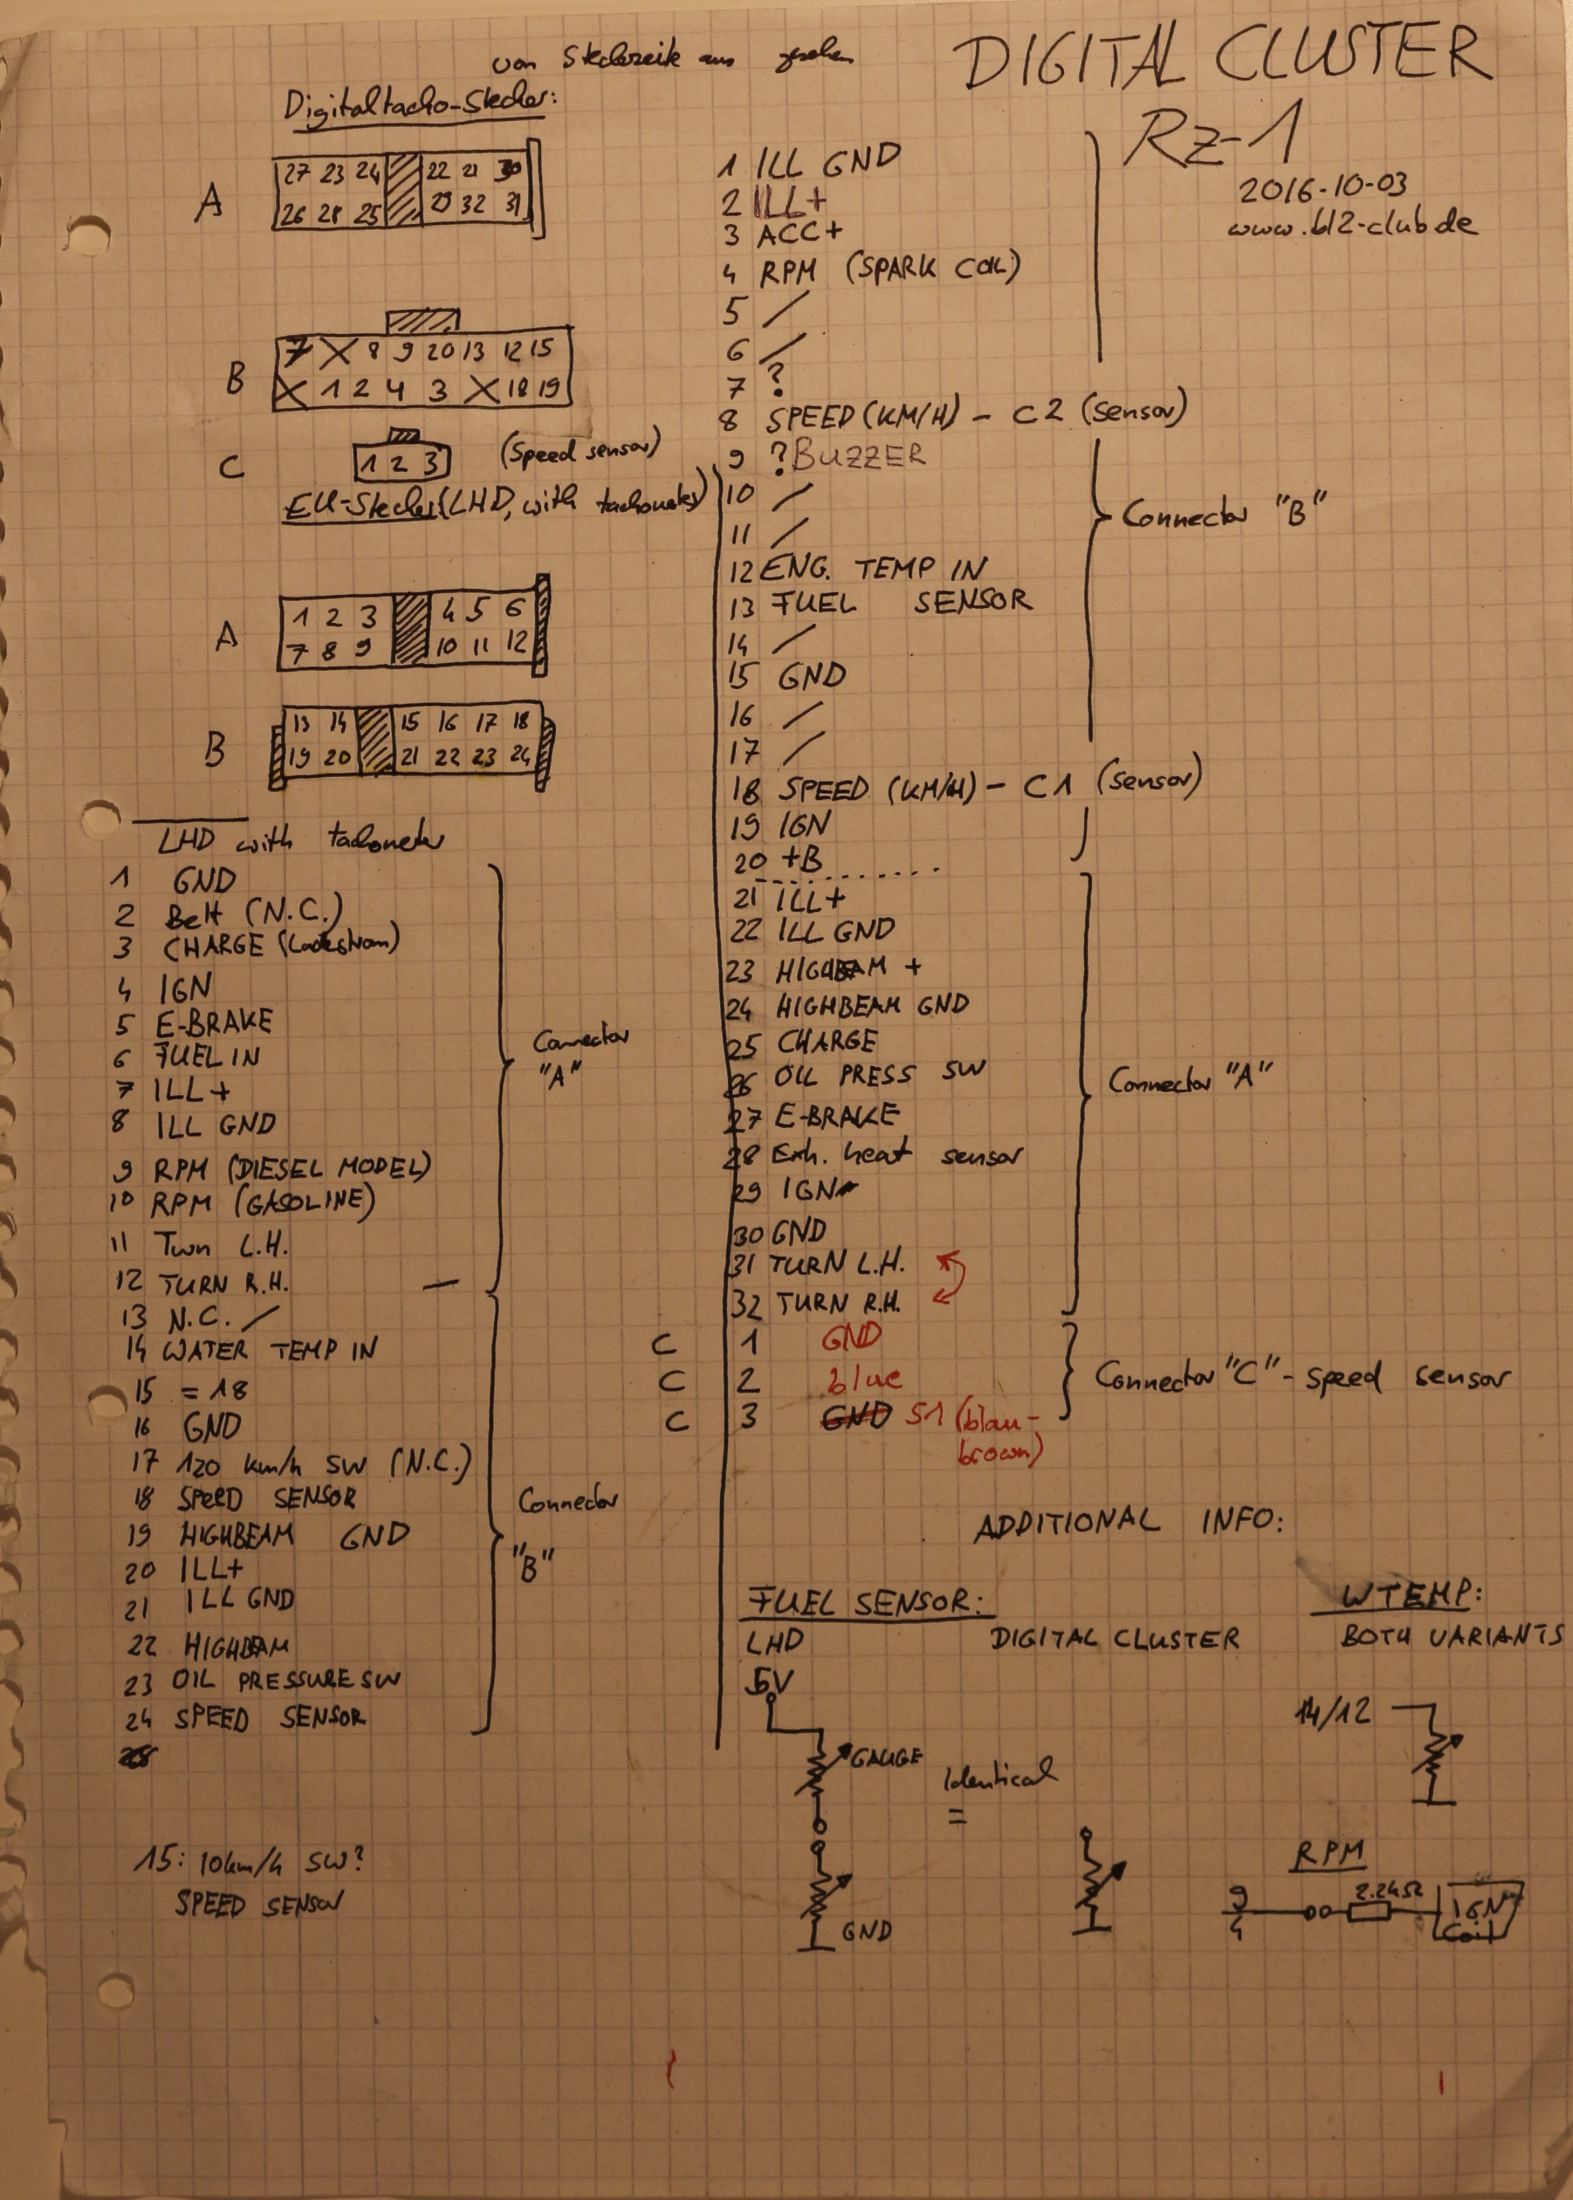 von Steckseite aus gesehen
DIGITAL CLUSTER
Rz-1
2016-10-03
www.b12-club.de
Digitaltacho-Stecker:
A
27 23 24 22 21 30
26 28 25 29 32 31
B
7 X 8 9 20 13 12 15
X 1 2 4 3 X 18 19
C
1 2 3 (Speed sensor)
EU-Stecker (LHD, with tachometer)
A
1 2 3 4 5 6
7 8 9 10 11 12
B
13 14 15 16 17 18
19 20 21 22 23 24
LHD with tachometer
1 GND
2 Belt (N.C.)
3 CHARGE (Ladestrom)
4 IGN
5 E-BRAKE
6 FUEL IN
7 ILL+
8 ILL GND
9 RPM (DIESEL MODEL)
10 RPM (GASOLINE)
11 Turn L.H.
12 TURN R.H. —
Connector
"A"
13 N.C. /
14 WATER TEMP IN
15 = 18
16 GND
17 120 km/h SW (N.C.)
18 SPEED SENSOR
19 HIGHBEAM GND
20 ILL+
21 ILL GND
22 HIGHBEAM
23 OIL PRESSURE SW
24 SPEED SENSOR
Connector
"B"
15: 10km/h SW?
SPEED SENSOR
1 ILL GND
2 ILL+
3 ACC+
4 RPM (SPARK COIL)
5 /
6 /
7 ?
8 SPEED (KM/H) - C2 (sensor)
9 ? BUZZER
10 /
11 /
12 ENG. TEMP IN
13 FUEL SENSOR
14 /
15 GND
16 /
17 /
18 SPEED (KM/H) - C1 (sensor)
19 IGN
20 +B
Connector "B"
21 ILL+
22 ILL GND
23 HIGHBEAM +
24 HIGHBEAM GND
25 CHARGE
26 OIL PRESS SW
27 E-BRAKE
28 Exh. heat sensor
29 IGN
30 GND
31 TURN L.H.
32 TURN R.H.
Connector "A"
C 1 GND
C 2 blue
C 3 GND S1 (blau-
brown)
Connector "C" - speed sensor
ADDITIONAL INFO:
FUEL SENSOR:
LHD DIGITAL CLUSTER
5V
GAUGE
Identical
=
GND
WTEMP:
BOTH VARIANTS
14/12
RPM
9
4
2.2kΩ
IGN
Coil